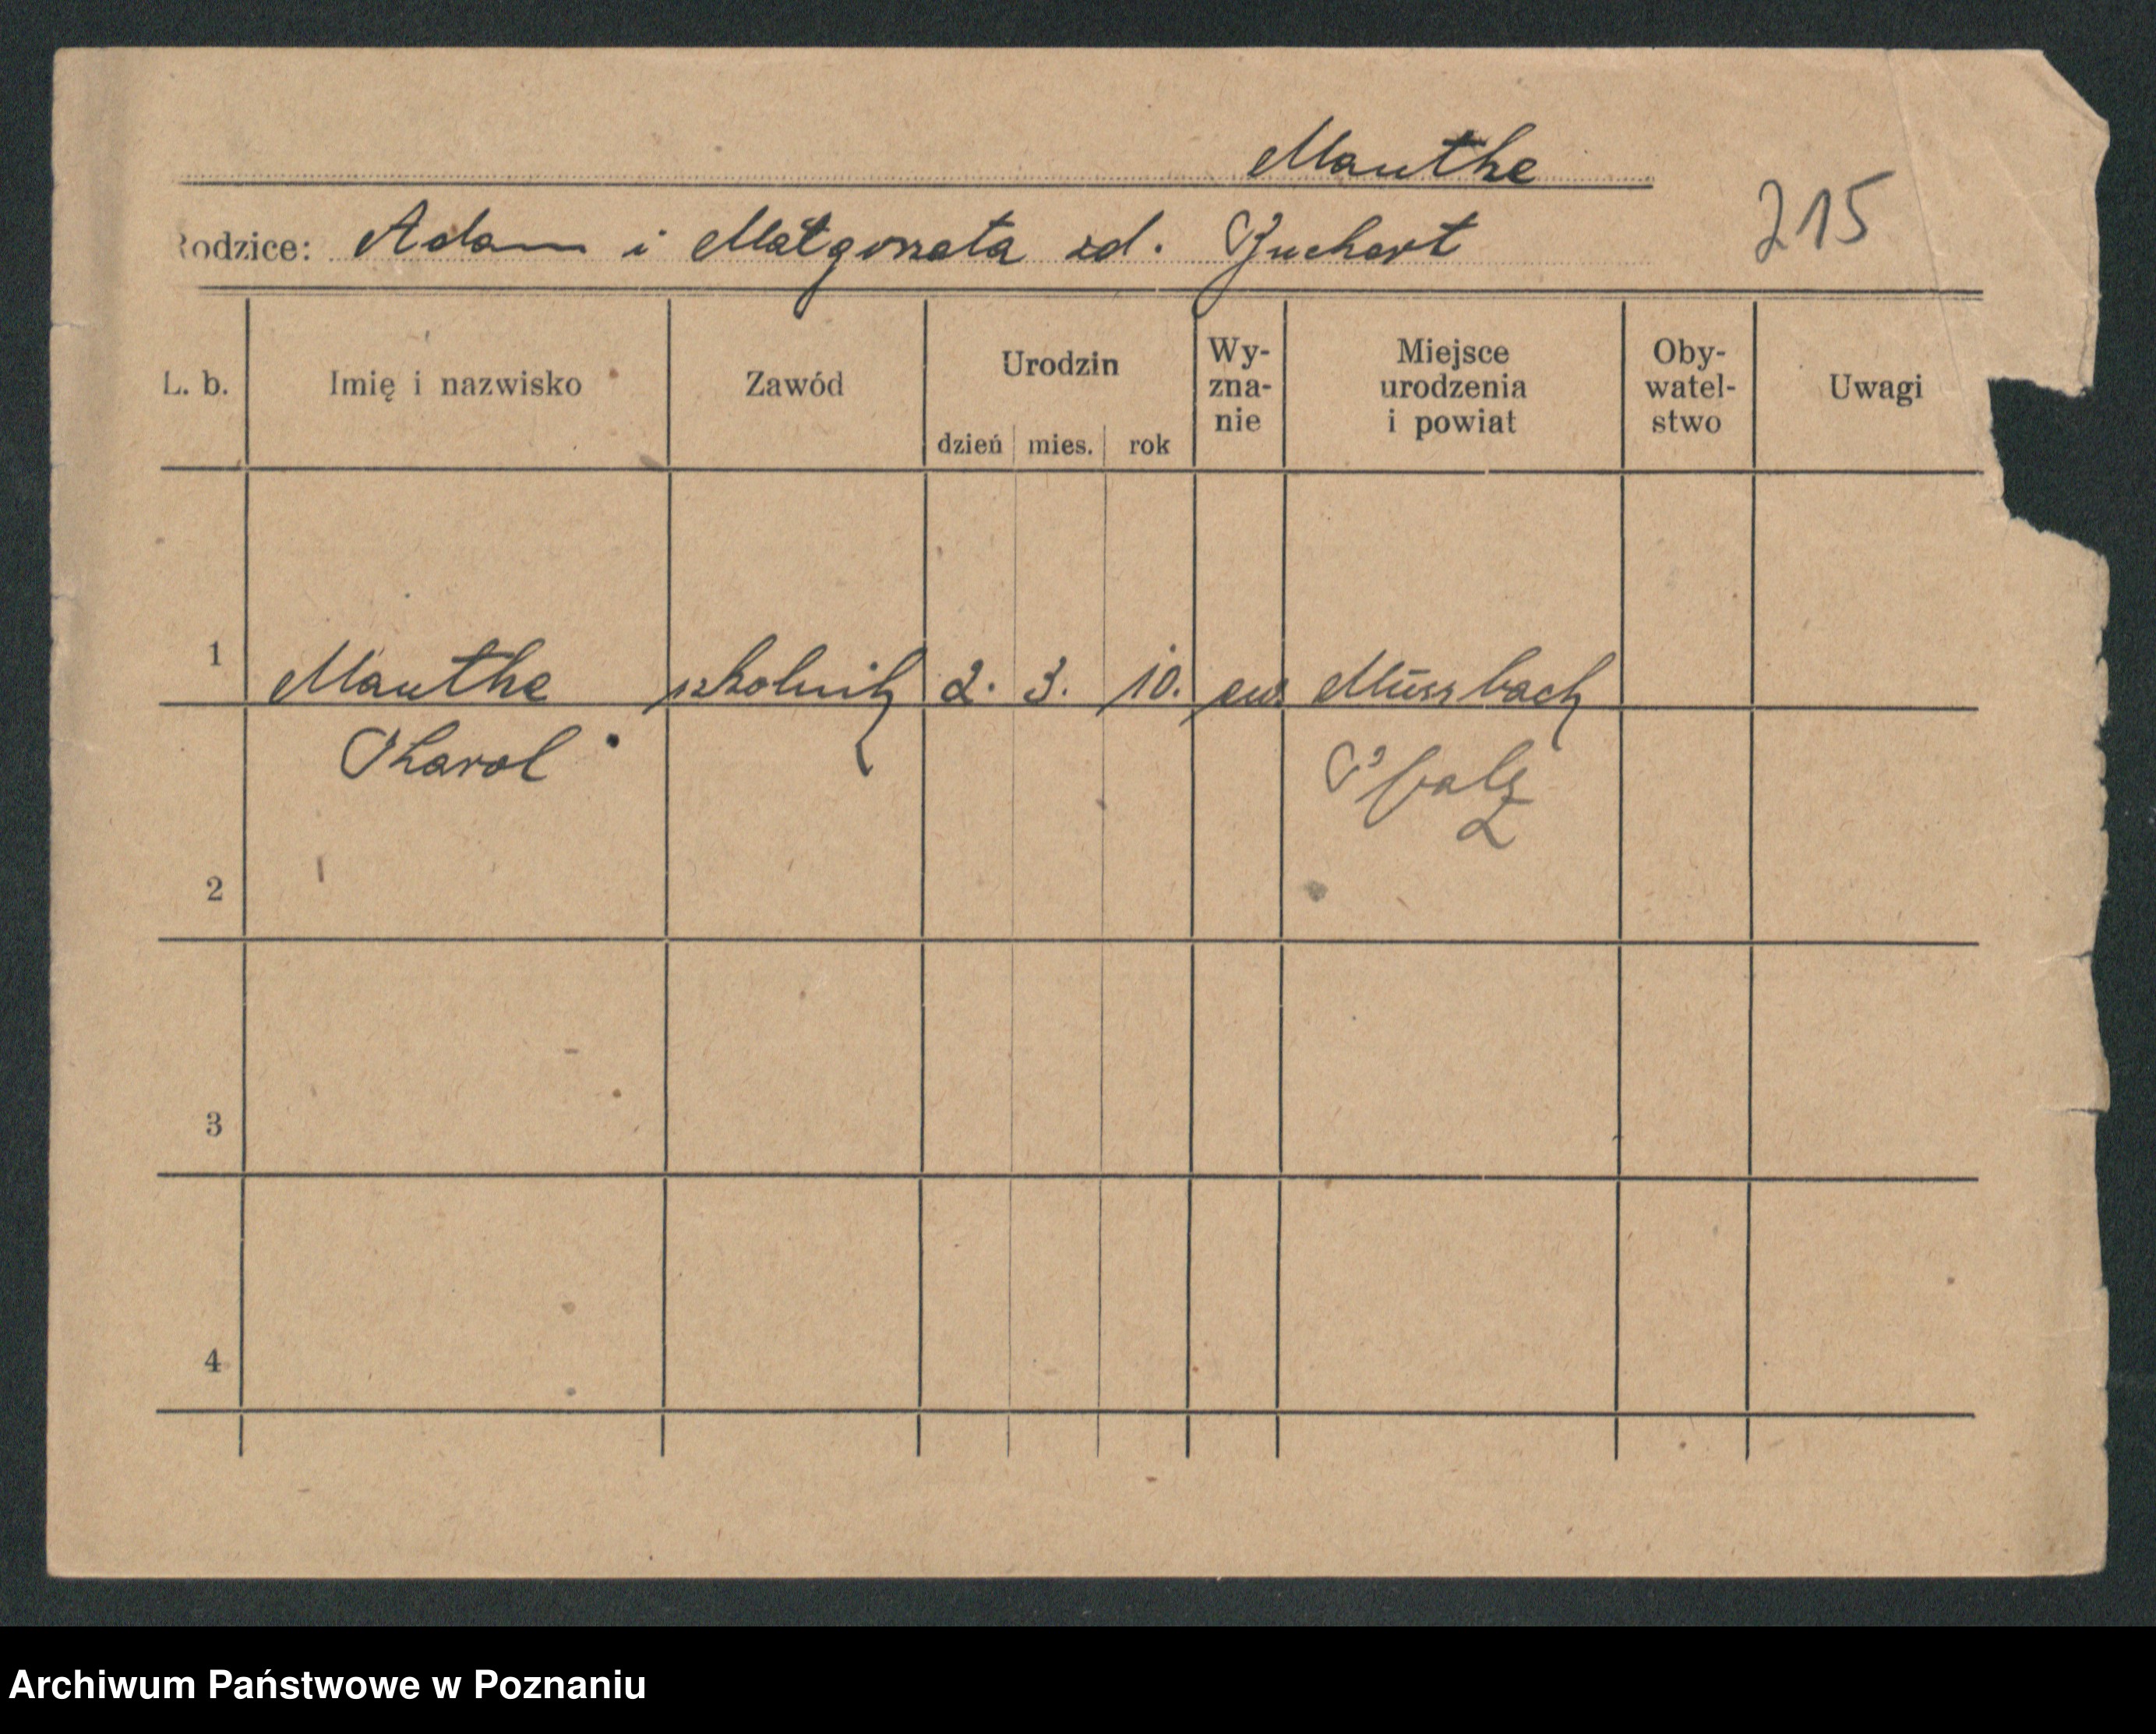 Mauthe
Rodzice: Adam i Małgorzata zd. Buchert
215
L. b. Imię i nazwisko Zawód Urodzin dzień mies. rok Wy-zna-nie Miejsce urodzenia i powiat Oby-watel-stwo Uwagi
1 Mauthe szkolnik 2. 3. 10. ew. Müssbach
Karol Pfalz
2
3
4
Archiwum Państwowe w Poznaniu